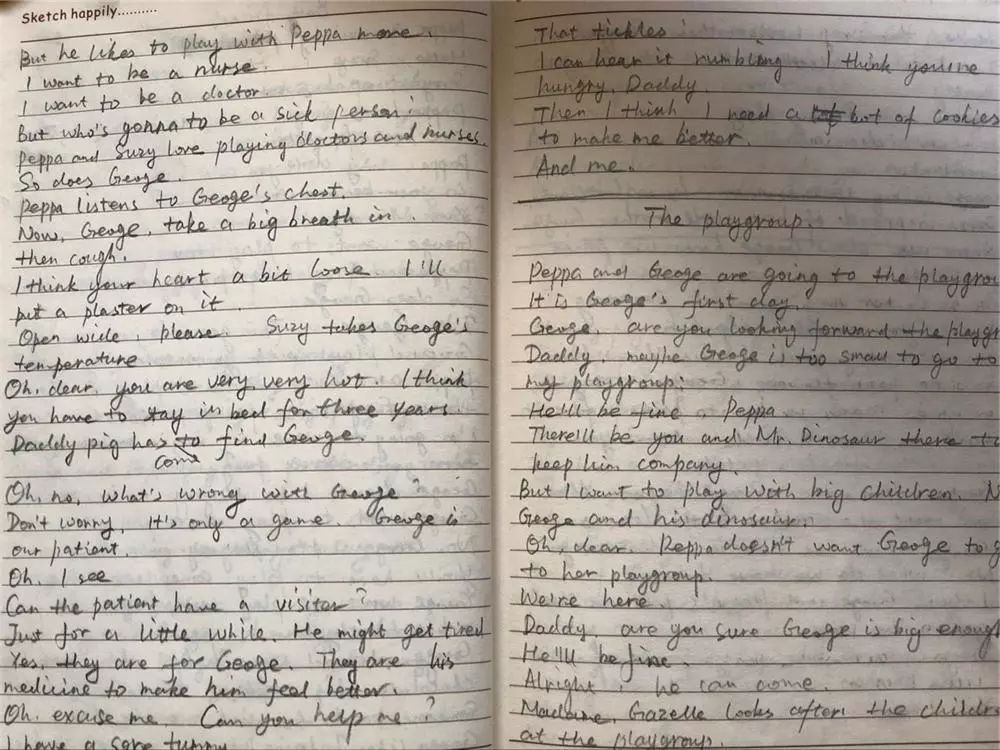 Sketch happily..........
But he likes to play with Peppa more.
I want to be a nurse.
I want to be a doctor.
But who's gonna to be a sick person?
Peppa and Suzy love playing doctors and nurses.
So does Geoge.
Peppa listens to Geoge's chest.
Now, Geoge, take a big breath in.
then cough.
I think your heart a bit loose I'll
put a plaster on it.
Open wide, please. Suzy takes Geoge's
temperature
Oh, dear, you are very, very hot. I think
you have to stay in bed for three years.
Daddy pig has to find Geoge.
come
Oh, no, what's wrong with Geoge?
Don't worry, it's only a game. Geoge is
our patient.
Oh. I see
Can the patient have a visiter?
Just for a little while. He might get tired
Yes, they are for Geoge. They are his
medicine to make him feel better.
Oh. excuse me. Can you help me?
I have a sore tummy
That tickles
I can hear it rumbling I think you're
hungry, Daddy.
Then I think I need a bot of cookies
to make me better.
And me.
The playgroup.
Peppa and Geoge are going to the playgrou
It is Geoge's first day.
Geoge, are you looking forward the playg
Daddy, maybe Geoge is too small to go to
my playgroup.
He'll be fine, Peppa
There'll be you and Mr. Dinosaur there to
keep him company.
But I want to play with big children. N
Geoge and his dinosaur.
Oh, dear. Peppa doesn't want Geoge to g
to her playgroup.
We're here.
Daddy, are you sure Geoge is big enough
He'll be fine.
Alright, he can come.
Madame, Gazelle looks after the childr
at the playgroup.